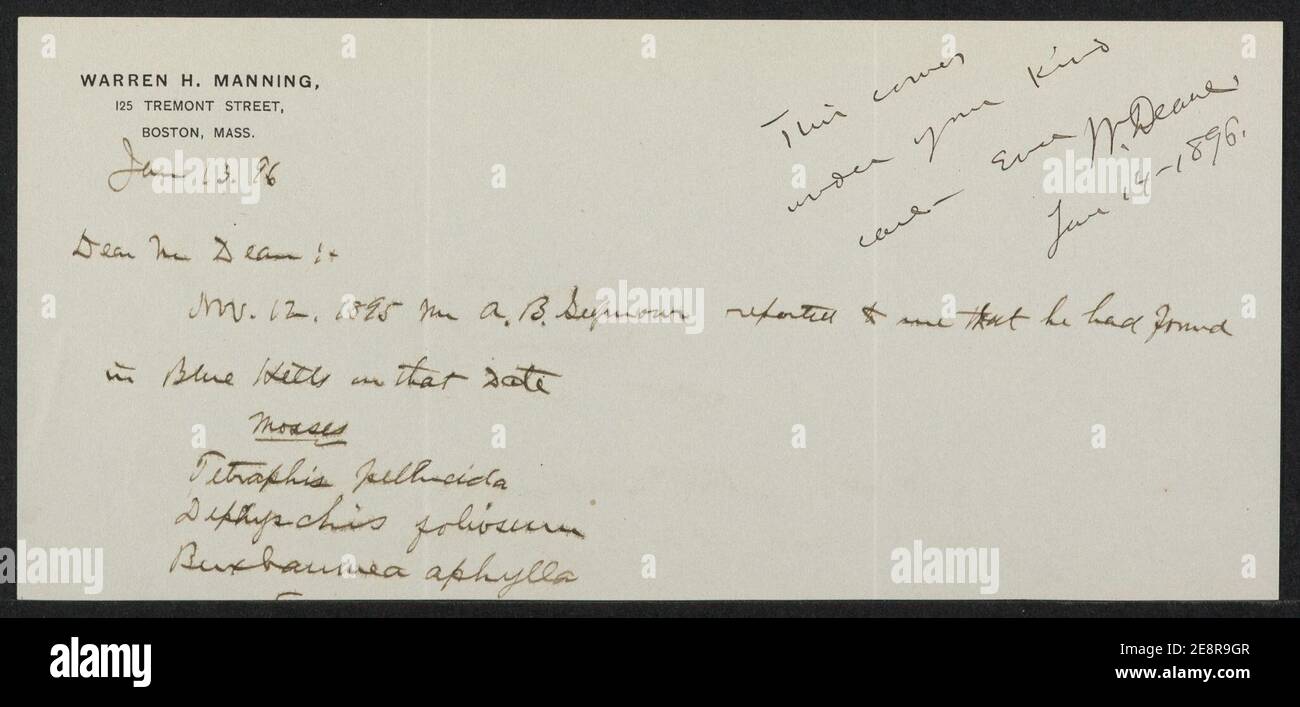 WARREN H. MANNING,
125 TREMONT STREET,
BOSTON, MASS.
Jan. 13. 96
This comes
under your kind
care – Ever W. Deane.
Jan. 14 – 1896.
Dear Mr Dean :+
Nov. 12. 1895 Mr A. B. Seymour reported to me that he had found
in Blue Hills on that Date
Mosses
Tetraphis pellucida
foliosum
Buxbaumea aphylla
alamy
Image ID: 2E8R9GR
www.alamy.com